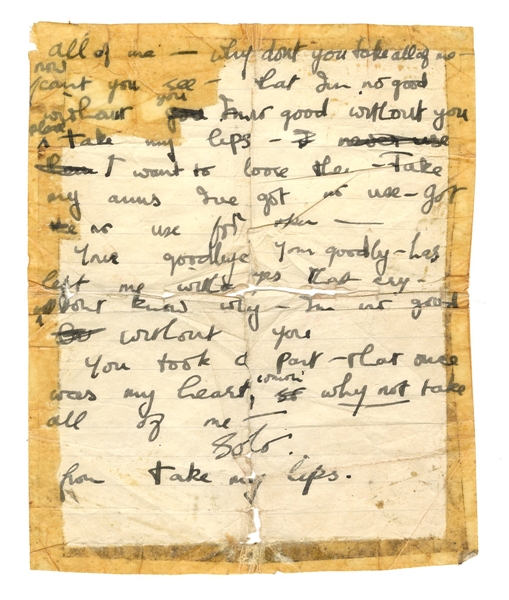 all of me — why dont you take all of me —
now
cant you see — that Im no good
without you Im no good without you
please
take my lips — I never use
them I want to loose them — Take
my arms Ive got no use — got
no use for —
Your goodbye Your goodby — has
left me with eyes that cry —
dont know why — Im no good
So without you
You took a part — that once
was my heart, common so why not take
all of me —
Solo.
from take my lips.